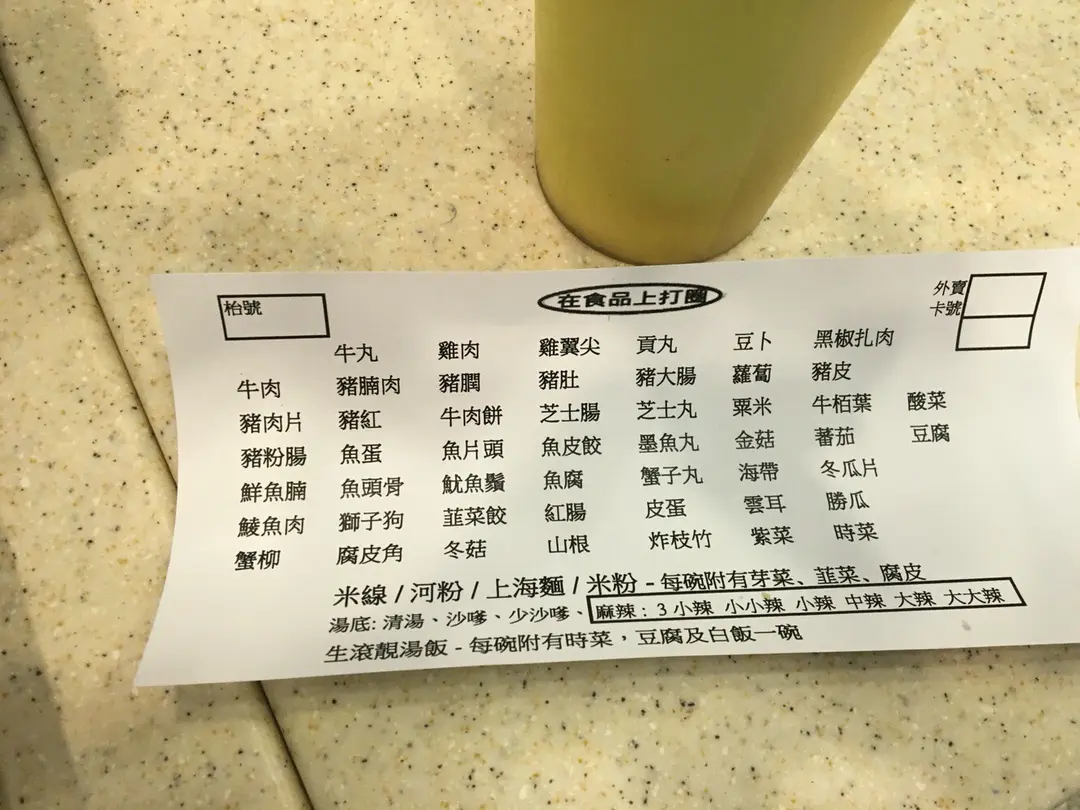 枱號
在食品上打圈
外賣
卡號
牛丸 雞肉 雞翼尖 貢丸 豆卜 黑椒扎肉
牛肉 豬腩肉 豬膶 豬肚 豬大腸 蘿蔔 豬皮
豬肉片 豬紅 牛肉餅 芝士腸 芝士丸 粟米 牛栢葉 酸菜
豬粉腸 魚蛋 魚片頭 魚皮餃 墨魚丸 金菇 蕃茄 豆腐
鮮魚腩 魚頭骨 魷魚鬚 魚腐 蟹子丸 海帶 冬瓜片
鯪魚肉 獅子狗 韮菜餃 紅腸 皮蛋 雲耳 勝瓜
蟹柳 腐皮角 冬菇 山根 炸枝竹 紫菜 時菜
米線 / 河粉 / 上海麵 / 米粉 - 每碗附有芽菜、韮菜、腐皮
湯底: 清湯、沙嗲、少沙嗲、麻辣: 3小辣 小小辣 小辣 中辣 大辣 大大辣
生滾靚湯飯 - 每碗附有時菜，豆腐及白飯一碗